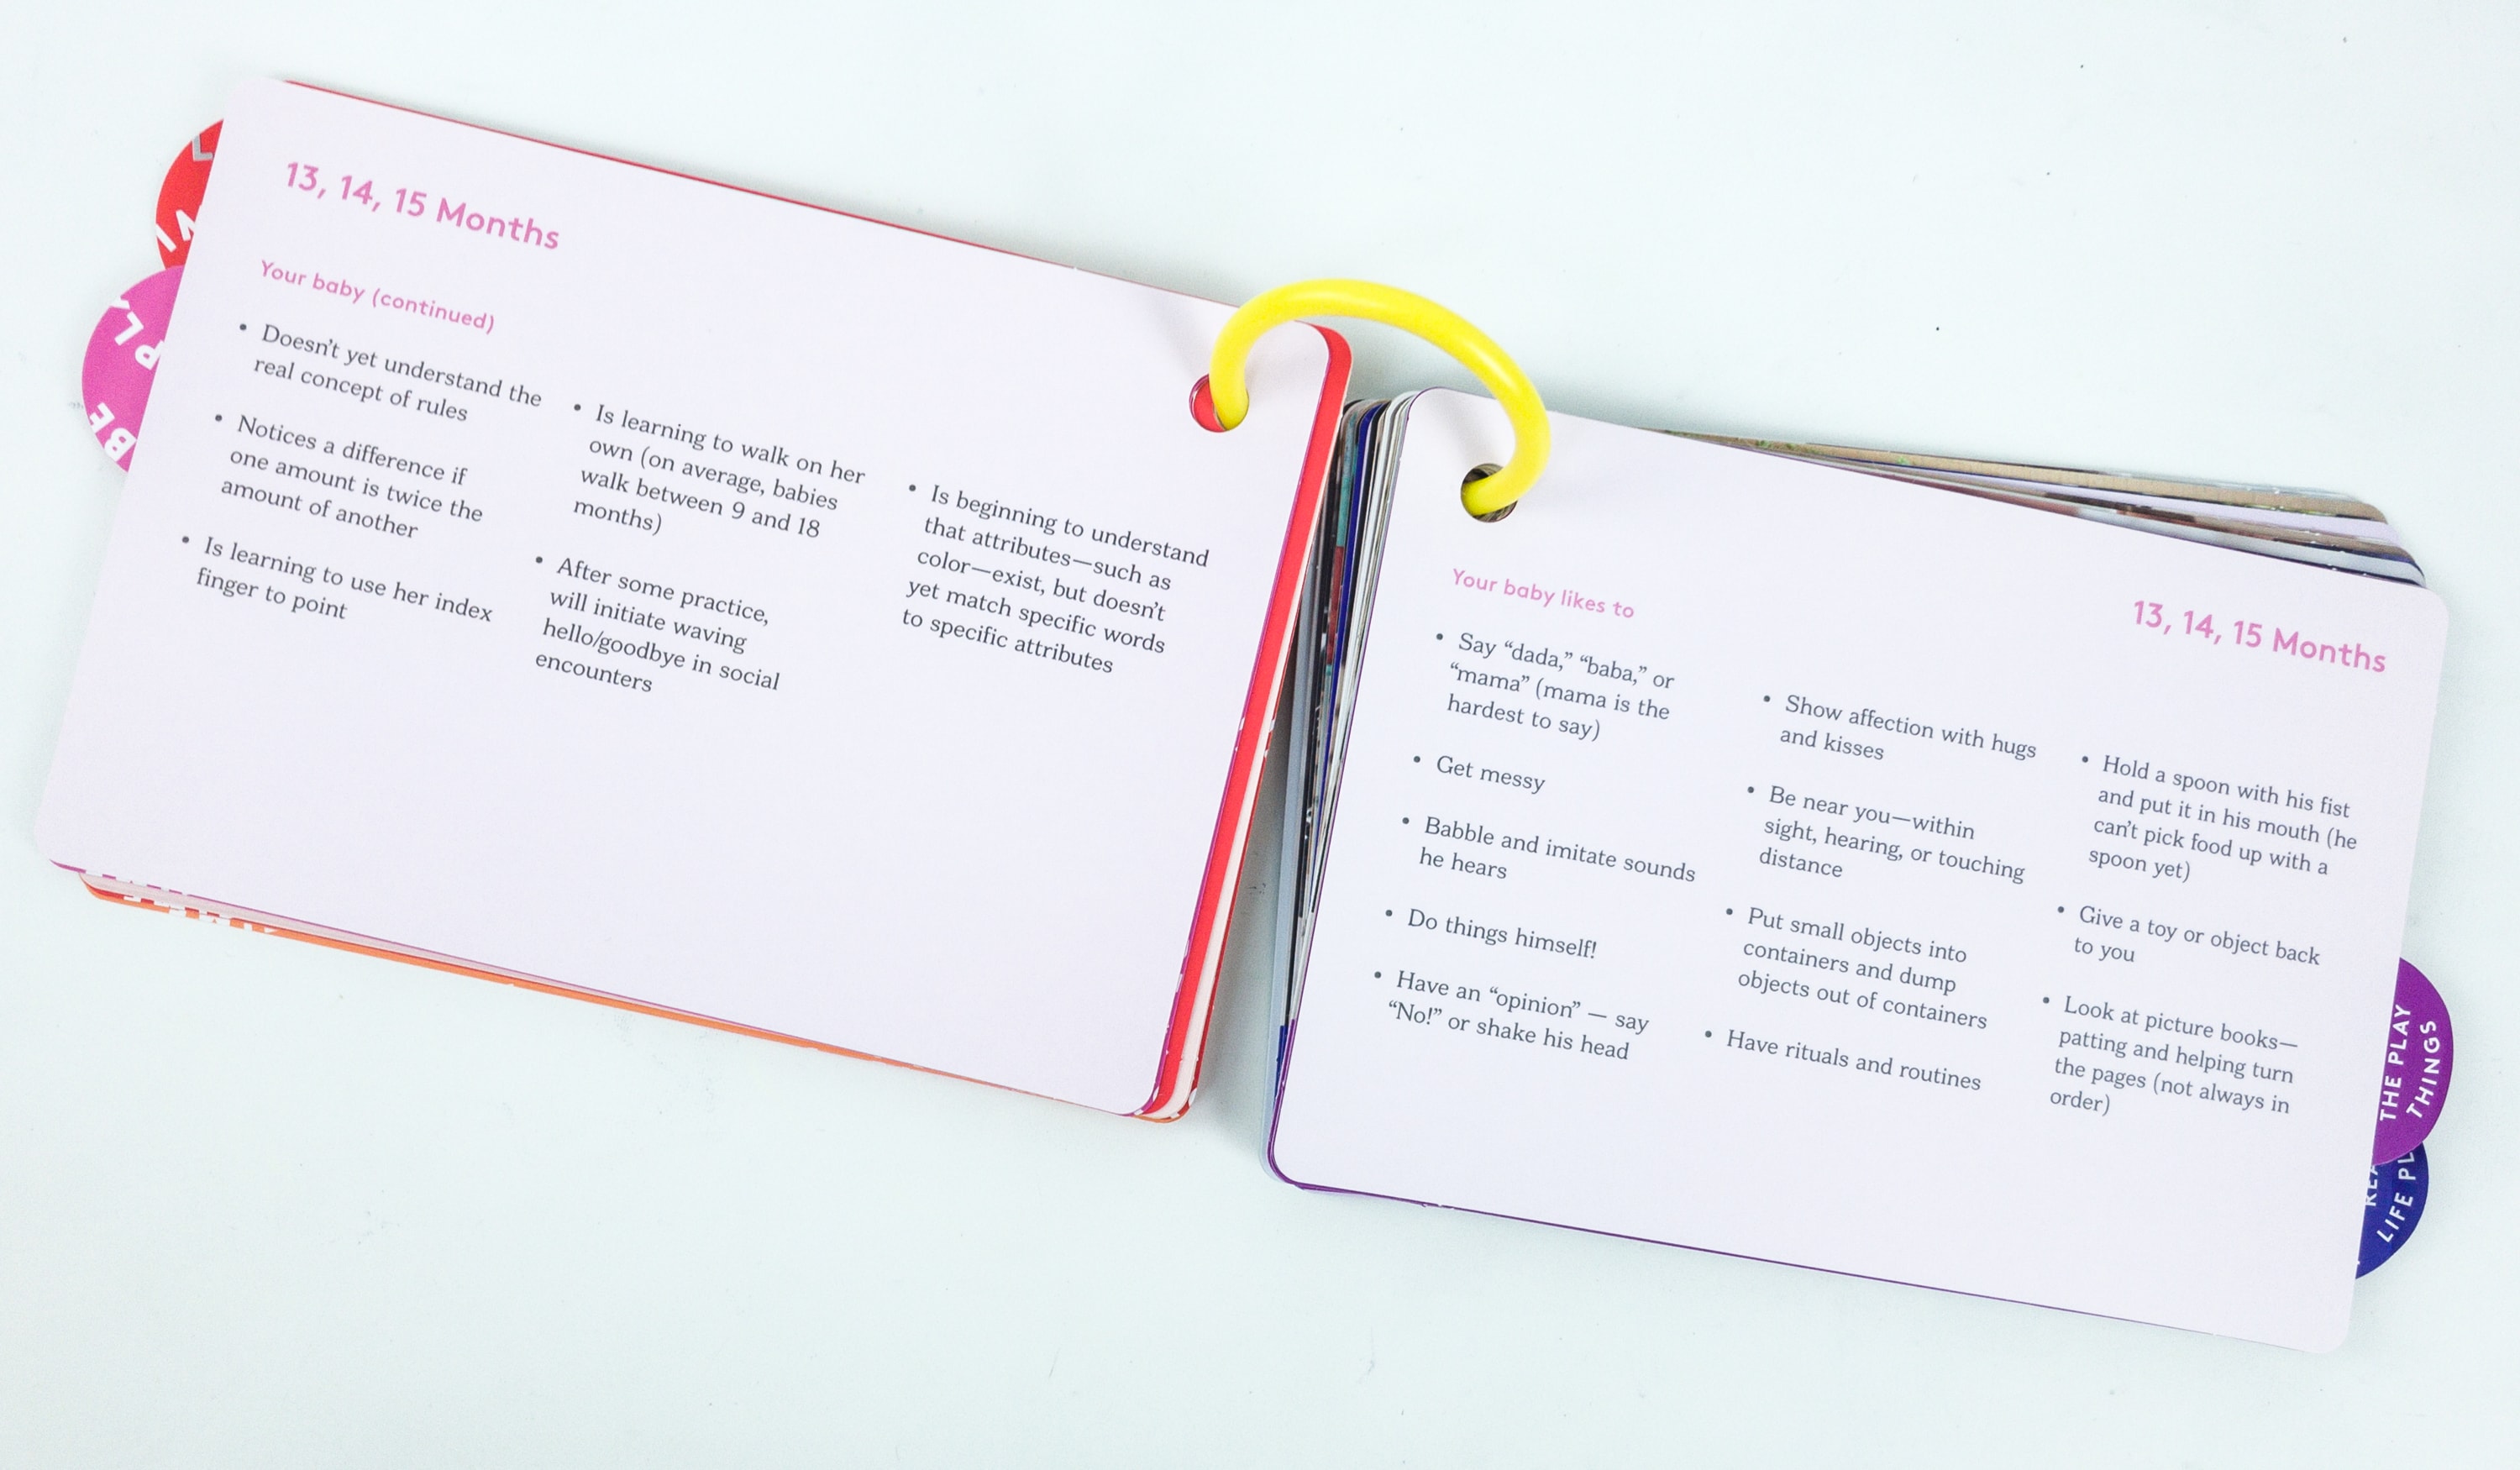 13, 14, 15 Months
Your baby (continued)
• Doesn't yet understand the
real concept of rules
• Notices a difference if
one amount is twice the
amount of another
• Is learning to use her index
finger to point
• Is learning to walk on her
own (on average, babies
walk between 9 and 18
months)
• After some practice,
will initiate waving
hello/goodbye in social
encounters
• Is beginning to understand
that attributes—such as
color—exist, but doesn't
yet match specific words
to specific attributes
13, 14, 15 Months
Your baby likes to
• Say “dada,” “baba,” or
“mama” (mama is the
hardest to say)
• Get messy
• Babble and imitate sounds
he hears
• Do things himself!
• Have an “opinion” — say
“No!” or shake his head
• Show affection with hugs
and kisses
• Be near you—within
sight, hearing, or touching
distance
• Put small objects into
containers and dump
objects out of containers
• Have rituals and routines
• Hold a spoon with his fist
and put it in his mouth (he
can't pick food up with a
spoon yet)
• Give a toy or object back
to you
• Look at picture books—
patting and helping turn
the pages (not always in
order)
THE PLAY
THINGS
LIFE